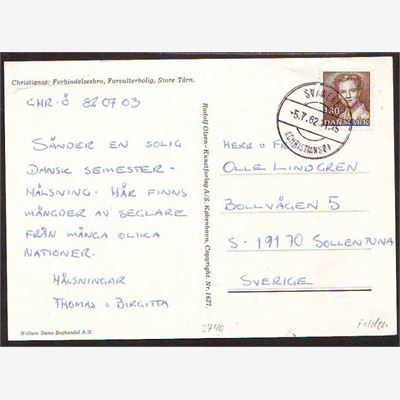 Christiansø: Forbindelsesbro, Forvalterbolig, Store Tårn.
CHR-Ö 820703
SÄNDER EN SOLIG
DANSK SEMESTER-
HÄLSNING. HÄR FINNS
MÄNGDER AV SEGLARE
FRÅN MÅNGA OLIKA
NATIONER.
HÄLSNINGAR
THOMAS o BIRGITTA
William Dams Boghandel A/S.
Rudolf Olsen - Kunstforlag A/S. København. Copyright. Nr. 1627.
-5.7.82
(CHRISTIANSØ)
180
DANMARK
HERR o FR
OLLE LINDGREN
BOLLVÄGEN 5
S-19170 SOLLENTUNA
SVERIGE